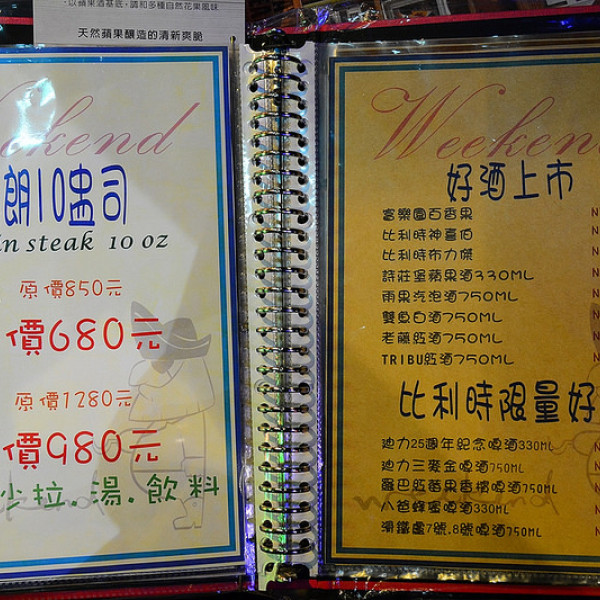 以蘋果酒基底，調和多種自然花果風味
天然蘋果釀造的清新爽脆
Weekend
朗10盎司
in steak 10 oz
原價850元
價680元
原價1280元
價980元
沙拉.湯.飲料
Weekend
好酒上市
富樂園百香果
比利時神喜伯
比利時布力傑
詩莊堡蘋果酒330ML
雨果汽泡酒750ML
雙魚白酒750ML
老藤紅酒750ML
TRIBU紅酒750ML
比利時限量好
迪力25週年紀念啤酒330ML
迪力三麥金啤酒750ML
羅巴紅莓果香檳啤酒750ML
八爸蜂蜜啤酒330ML
滑鐵盧7號.8號啤酒750ML